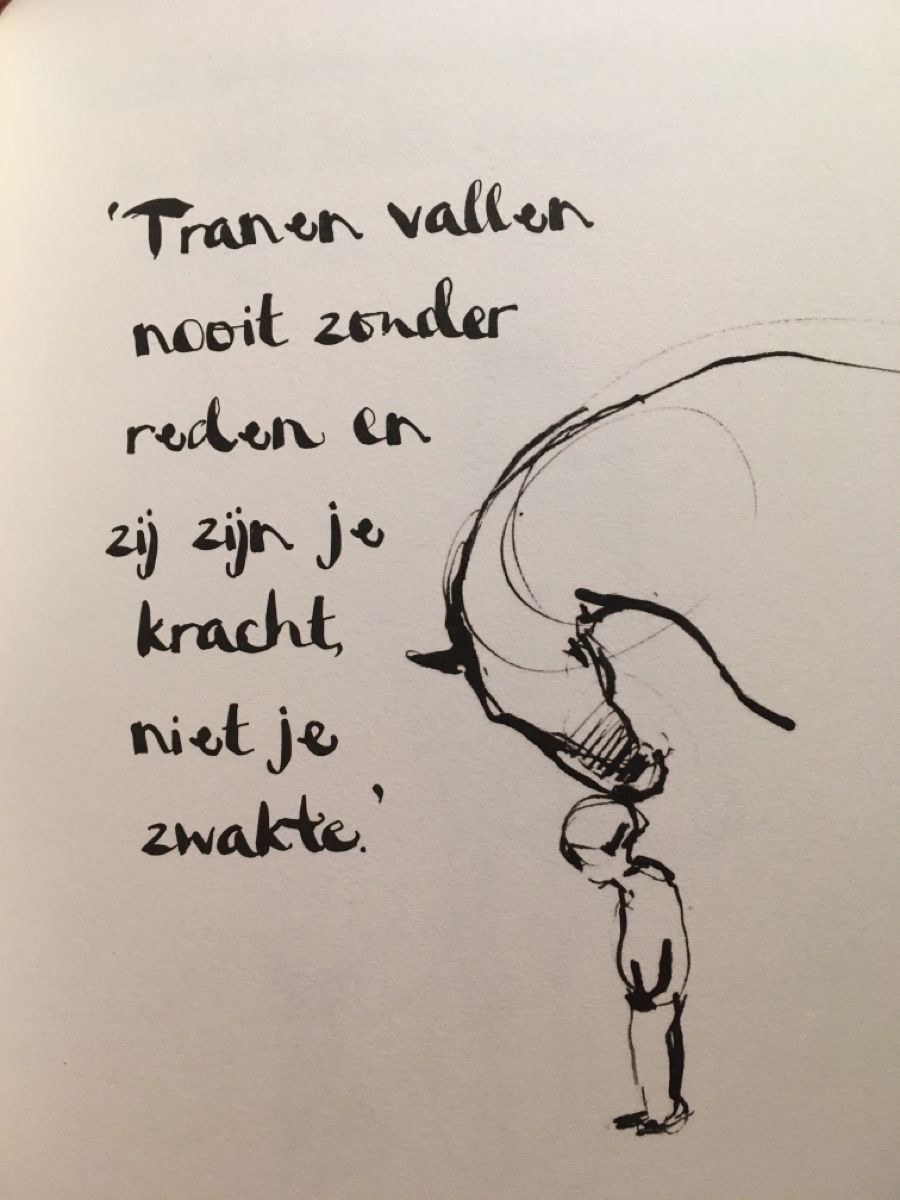 'Tranen vallen
nooit zonder
reden en
zij zijn je
kracht,
niet je
zwakte.'